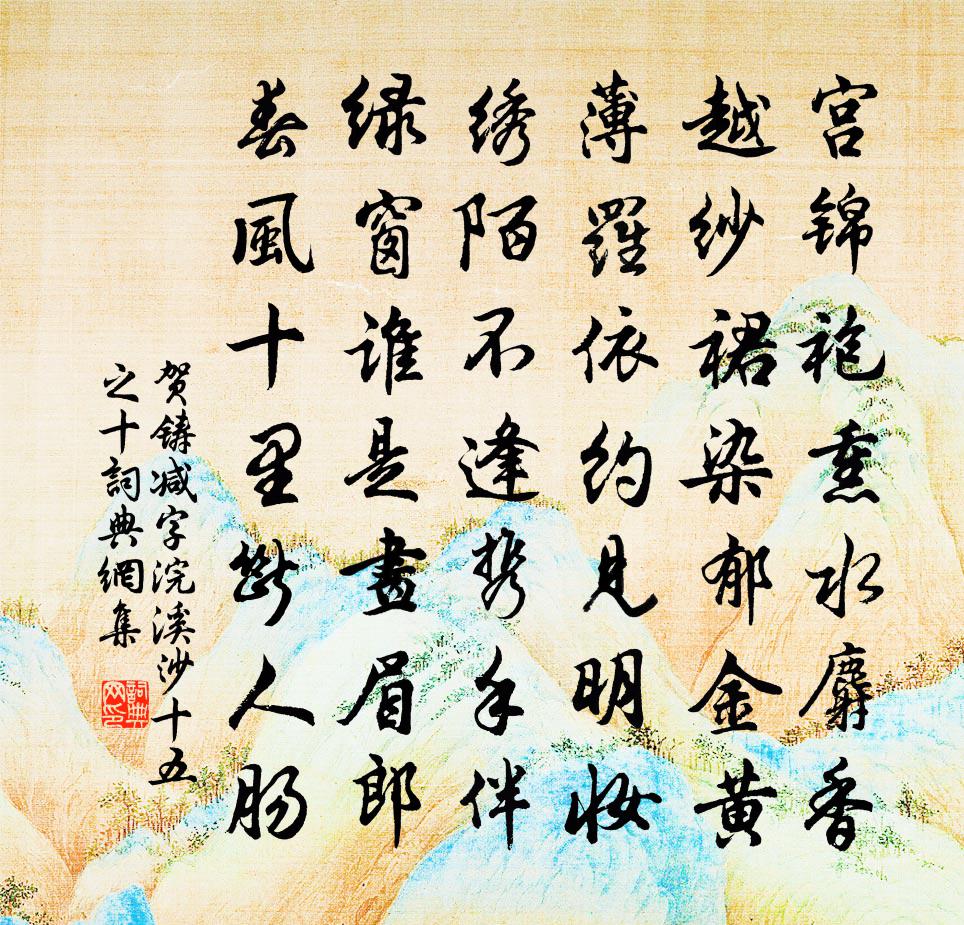 宫锦袍熏水麝香
越纱裙染郁金黄
薄羅依约见明妆
绣陌不逢携手伴
绿窗谁是畫眉郎
春風十里斷人肠
贺铸减字浣溪沙十五
之十詞典網集
詞典网印